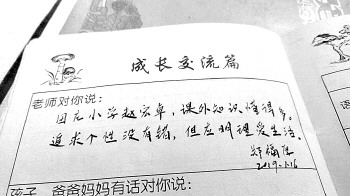 成长交流篇
老师对你说：
因无小学赵宏卓，课外知识懂得多。
追求个性没有错，但应明理爱生活。
郑福胜
2019.1.16
孩子，爸爸妈妈有话对你说：